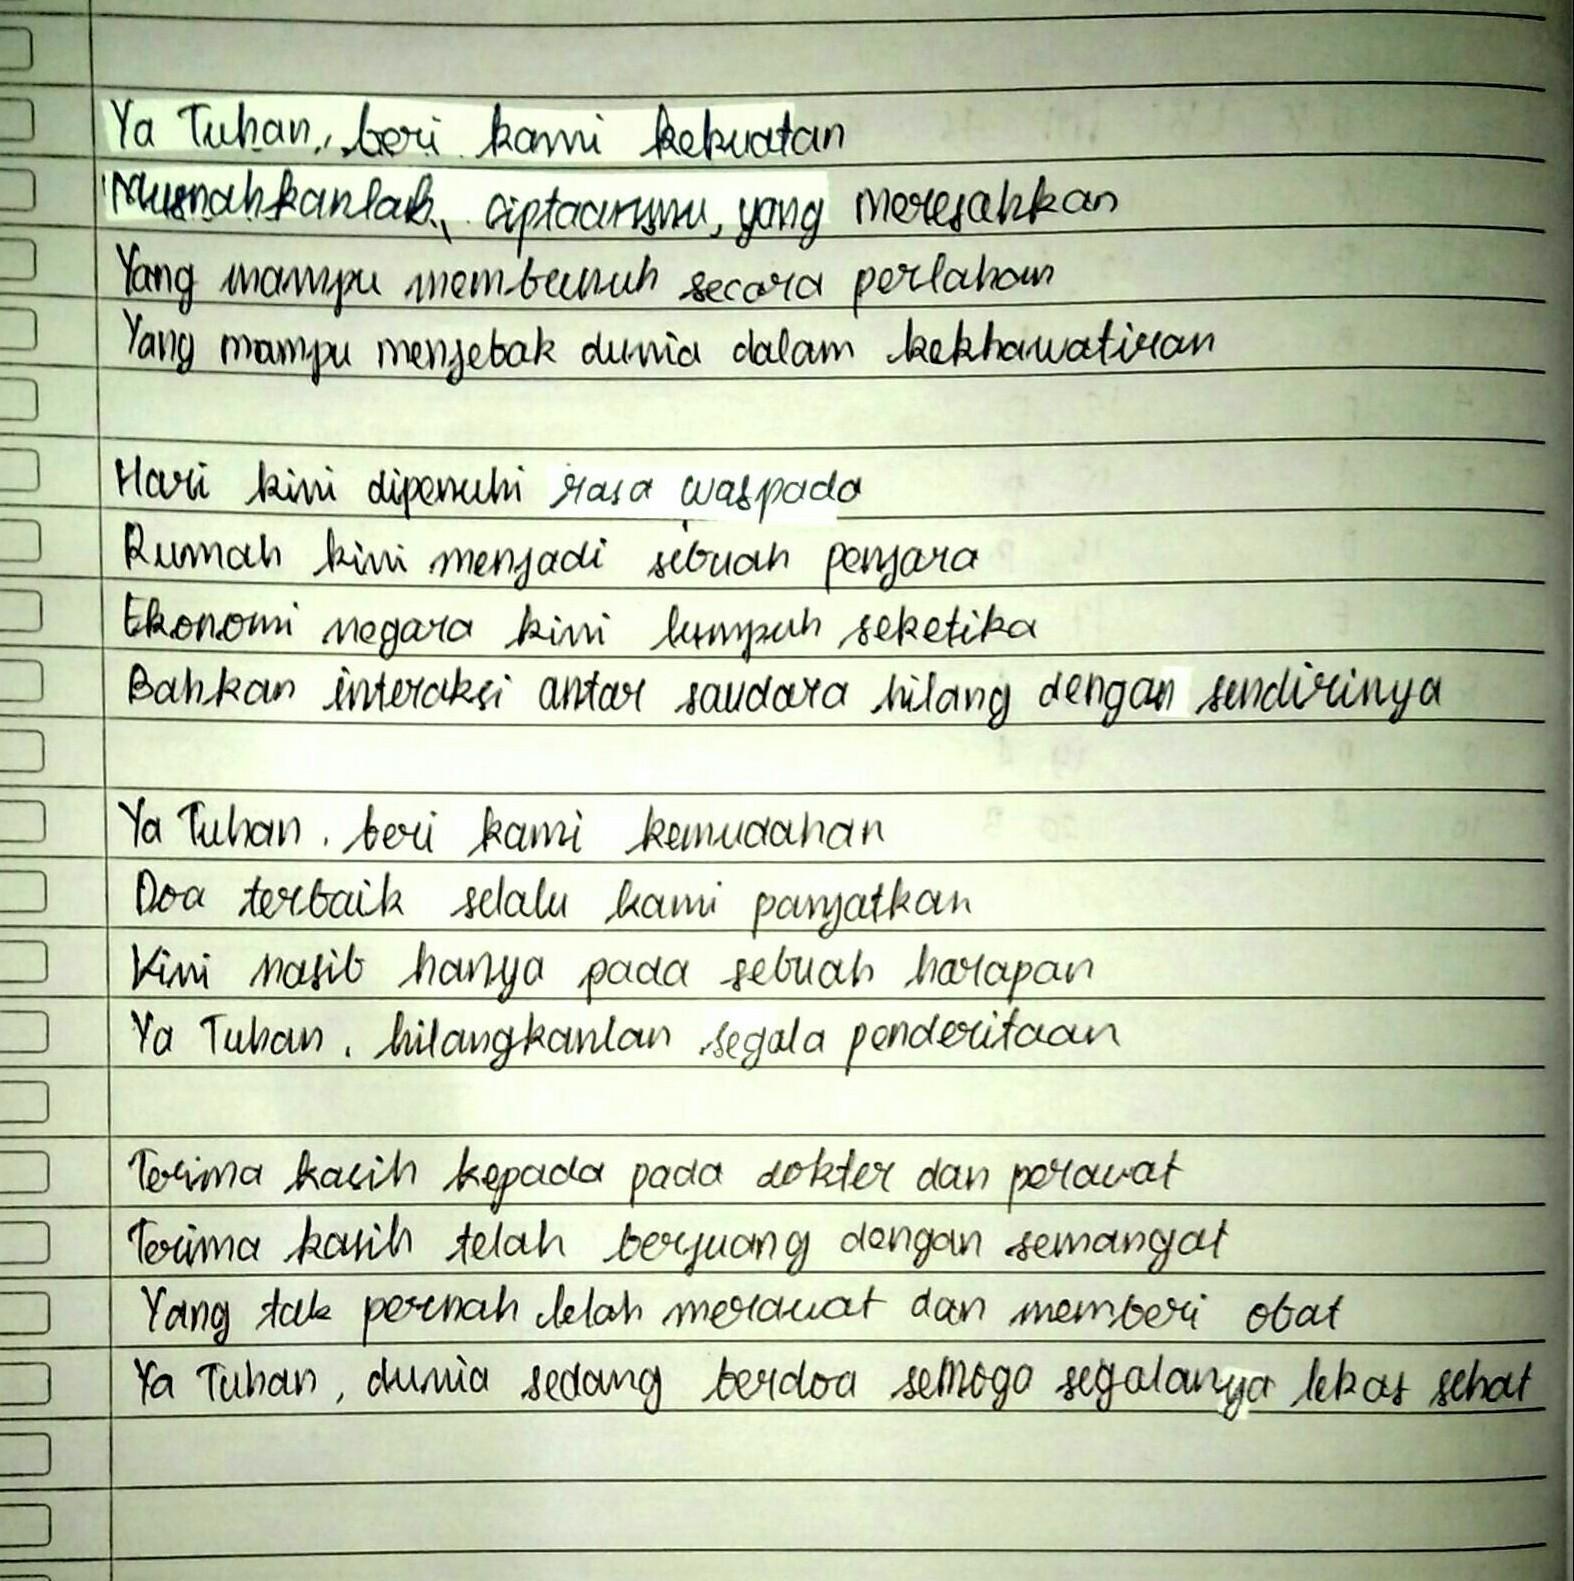 Ya Tuhan, beri kami kekuatan
Musnahkanlah, ciptaanmu, yang meresahkan
Yang mampu membunuh secara perlahan
Yang mampu menjebak dunia dalam kekhawatiran
Hari kini dipenuhi rasa waspada
Rumah kini menjadi sebuah penjara
Ekonomi negara kini lumpuh seketika
Bahkan interaksi antar saudara hilang dengan sendirinya
Ya Tuhan, beri kami kemudahan
Doa terbaik selalu kami panjatkan
Kini nasib hanya pada sebuah harapan
Ya Tuhan, hilangkanlah segala penderitaan
Terima kasih kepada pada dokter dan perawat
Terima kasih telah berjuang dengan semangat
Yang tak pernah lelah merawat dan memberi obat
Ya Tuhan, dunia sedang berdoa semoga segalanya lekas sehat